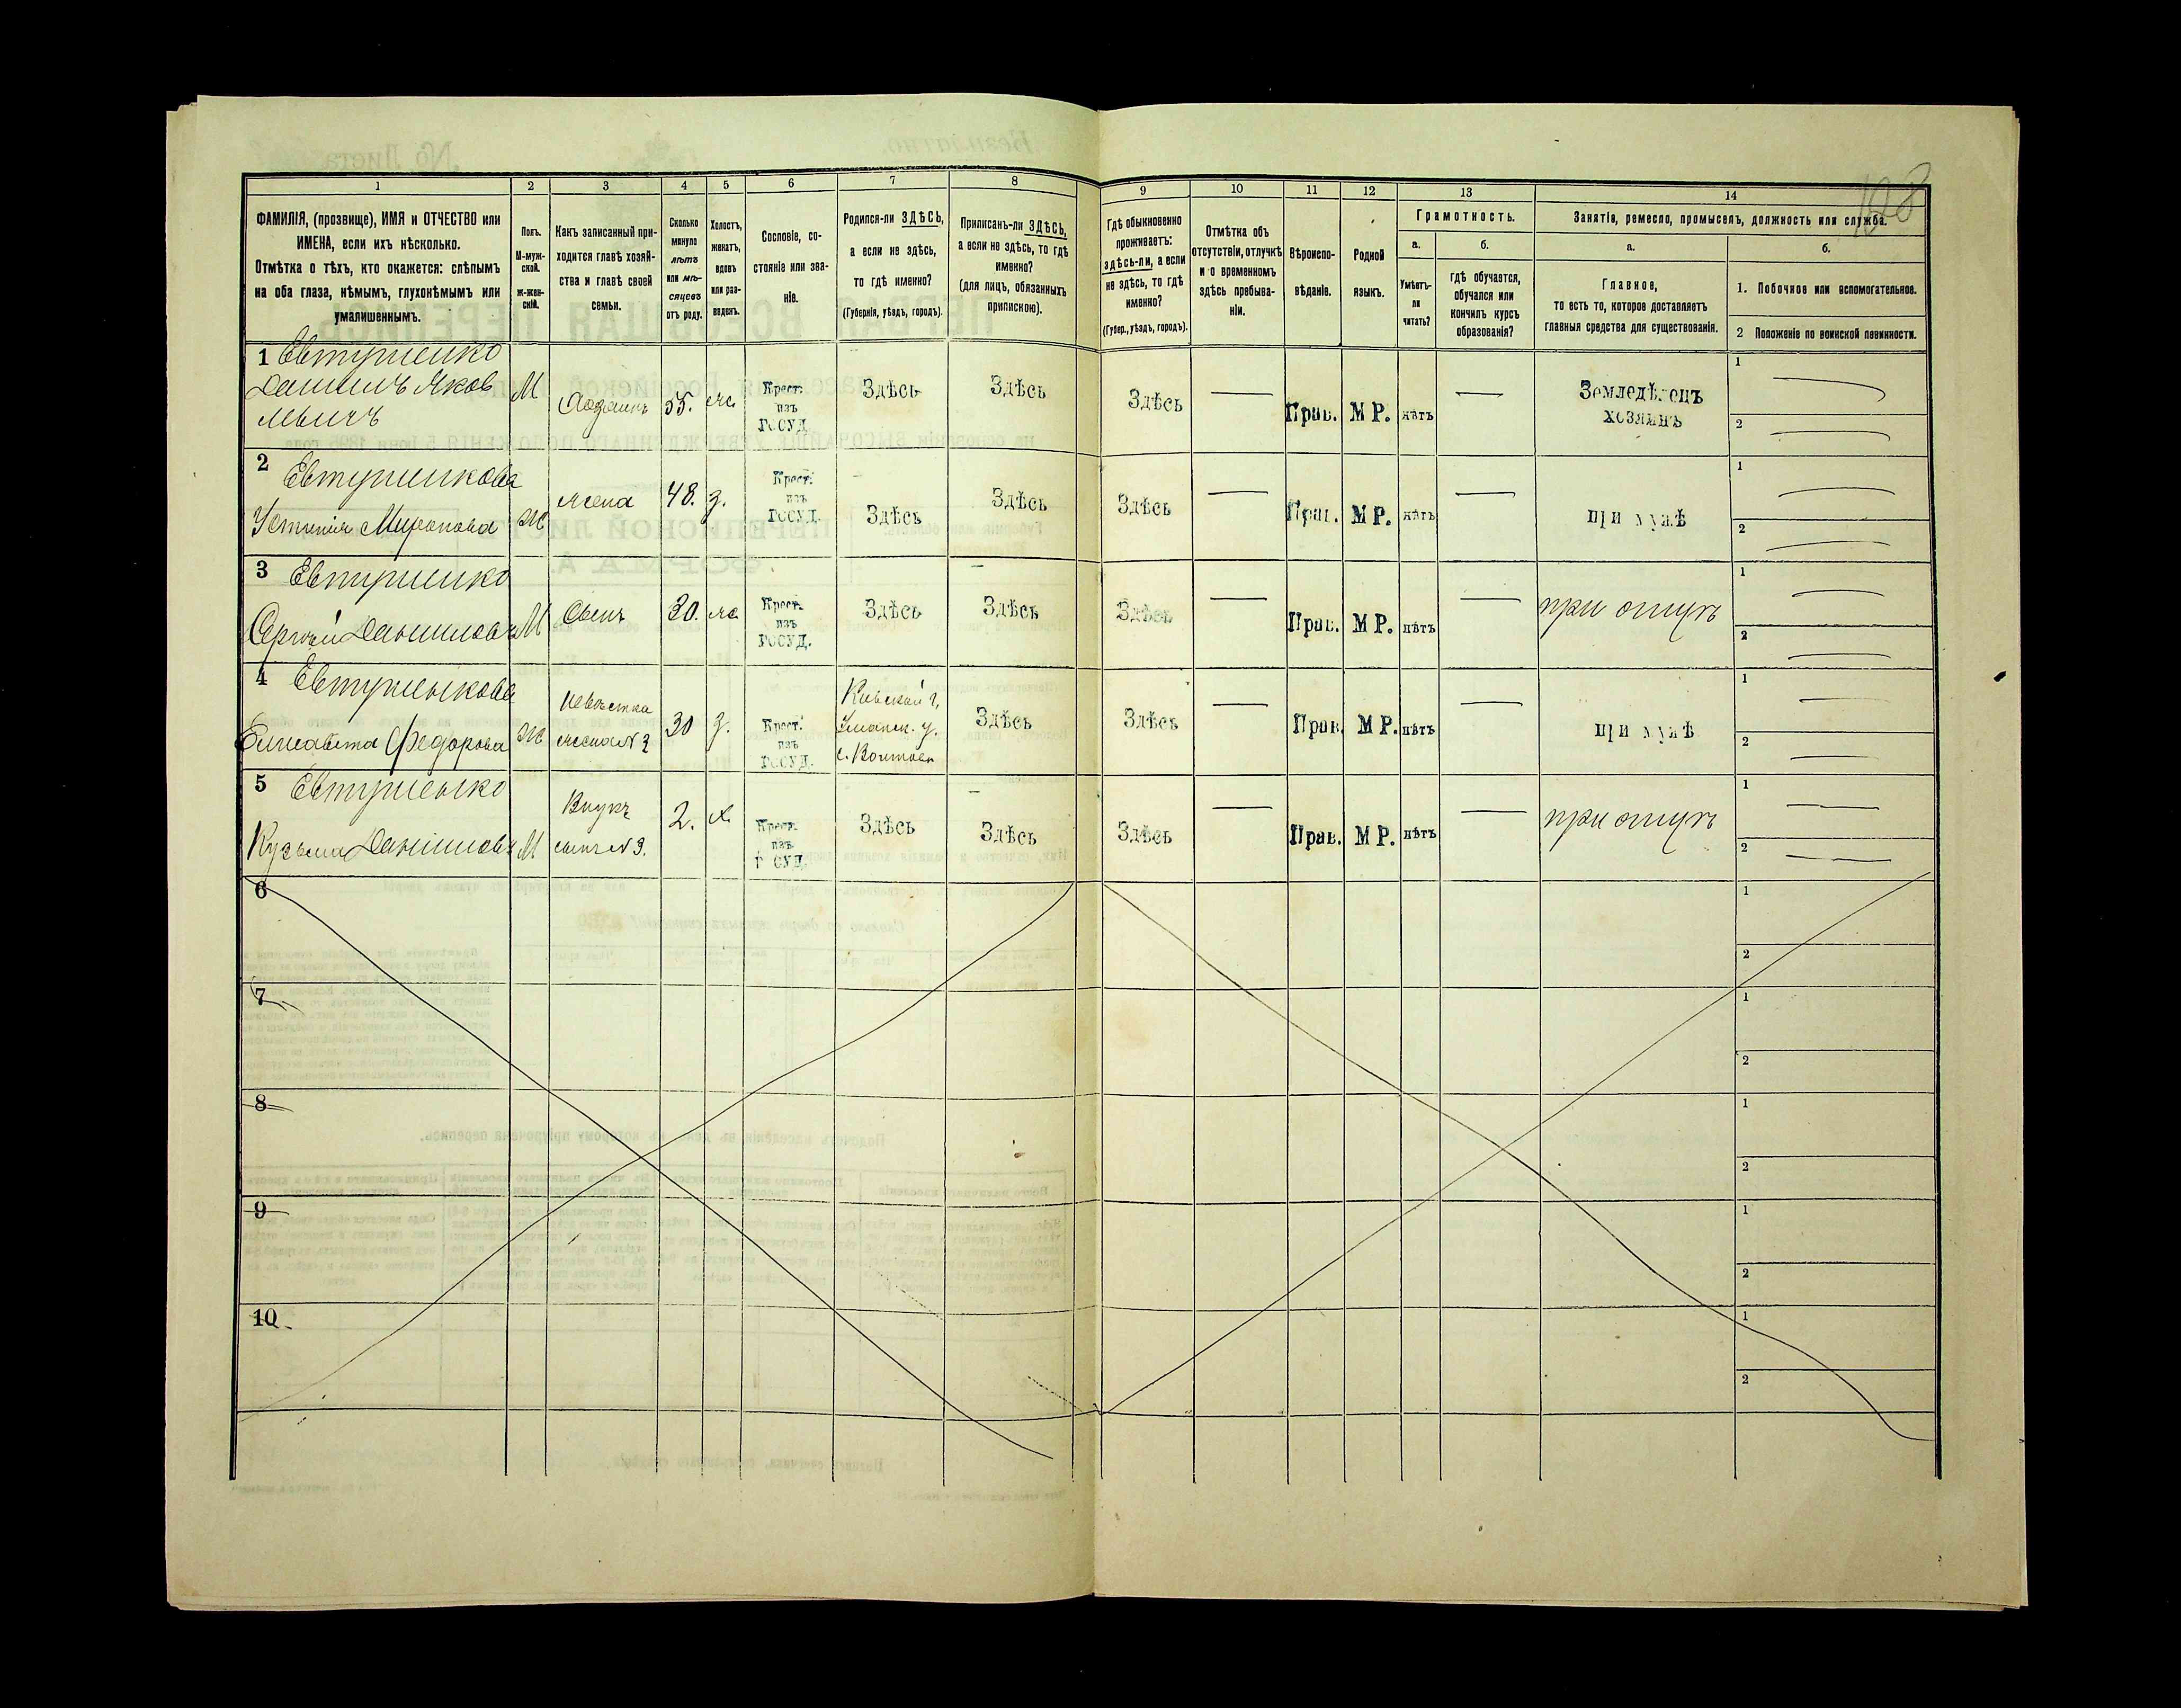 158
1 2 3 4 5 6 7 8 9 10 11 12 13 14
ФАМИЛІЯ, (прозвище), ИМЯ и ОТЧЕСТВО или
ИМЕНА, если ихъ нѣсколько.
Отмѣтка о тѣхъ, кто окажется: слѣпымъ
на оба глаза, нѣмымъ, глухонѣмымъ или
умалишеннымъ.
Полъ.
М-муж-
ской.
ж-жен-
скій.
Какъ записанный при-
ходится главѣ хозяй-
ства и главѣ своей
семьи.
Сколько
минуло
лѣтъ
или мѣ-
сяцевъ
отъ роду.
Холостъ,
женатъ,
вдовъ
или раз-
веденъ.
Сословіе, со-
стояніе или зва-
ніе.
Родился-ли ЗДѢСЬ,
а если не здѣсь,
то гдѣ именно?
(Губернія, уѣздъ, городъ).
Приписанъ-ли ЗДѢСЬ,
а если не здѣсь, то гдѣ
именно?
(для лицъ, обязанныхъ
припискою).
Гдѣ обыкновенно
проживаетъ:
здѣсь-ли, а если
не здѣсь, то гдѣ
именно?
(Губер., уѣздъ, городъ).
Отмѣтка объ
отсутствіи, отлучкѣ
и о временномъ
здѣсь пребыва-
ніи.
Вѣроиспо-
вѣданіе.
Родной
языкъ.
Грамотность.
а.
Умѣетъ-
ли
читать?
б.
гдѣ обучается,
обучался или
кончилъ курсъ
образованія?
Занятіе, ремесло, промыселъ, должность или служба.
а.
Главное,
то есть то, которое доставляетъ
главныя средства для существованія.
б.
1. Побочное или вспомогательное.
2 Положеніе по воинской повинности.
1 Евтушенко
Даниилъ Яков
левичъ
М
Хозяинъ
55.
же.
Крест.
изъ
ГОСУД
Здѣсь
Здѣсь
Здѣсь
Прав.
М Р.
нѣтъ
Земледѣлецъ
хозяинъ
1
2
2 Евтушенкова
Устинія Миронова
Ж
жена
48.
з.
Крест.
изъ
ГОСУД.
Здѣсь
Здѣсь
Здѣсь
Прав.
М Р.
нѣтъ
при мужѣ
1
2
3 Евтушенко
Сергѣй Даниловъ
М
Сынъ
30.
же.
Крест.
изъ
ГОСУД.
Здѣсь
Здѣсь
Здѣсь
Прав.
М Р.
нѣтъ
при отцѣ
1
2
4 Евтушенкова
Елисавета Федорова
Ж
невѣстка
жена N 3
30
з.
Крест.
изъ
ГОСУД.
Кіевской г.
Уманск. у.
Здѣсь
Здѣсь
Прав.
М Р.
нѣтъ
при мужѣ
1
2
5 Евтушенко
Кузьма Даниловъ
М
Внукъ
сынъ N 3.
2.
х.
Крест.
изъ
ГОСУД.
Здѣсь
Здѣсь
Здѣсь
Прав.
М Р.
нѣтъ
при отцѣ
1
2
6
1
2
7
1
2
8
1
2
9
1
2
10
1
2